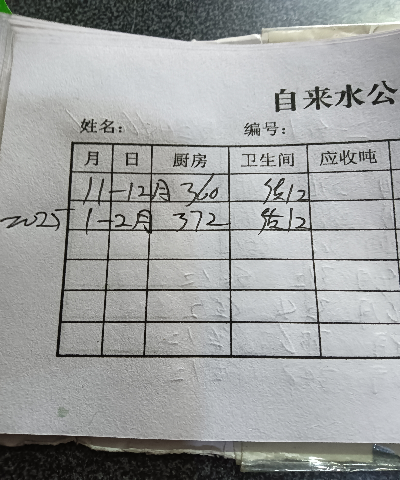 自来水公
姓名： 编号：
月 日 厨房 卫生间 应收吨
11-12月 360 12
2025 1-2月 372 12